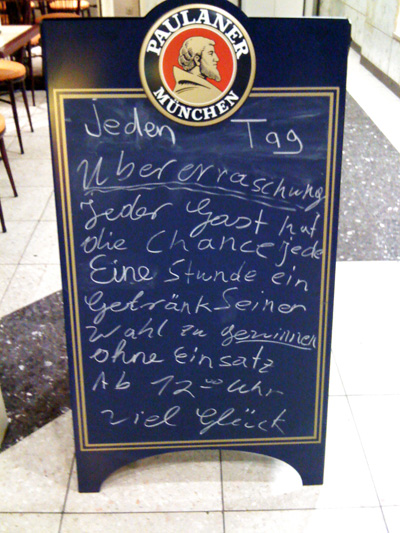 PAULANER
MÜNCHEN
Jeden Tag
Übererraschung
Jeder Gast hat
die Chance jede
Eine Stunde ein
Getränk Seiner
Wahl zu gewinnen
ohne Einsatz
Ab 12⁰⁰ Uhr
Viel Glück